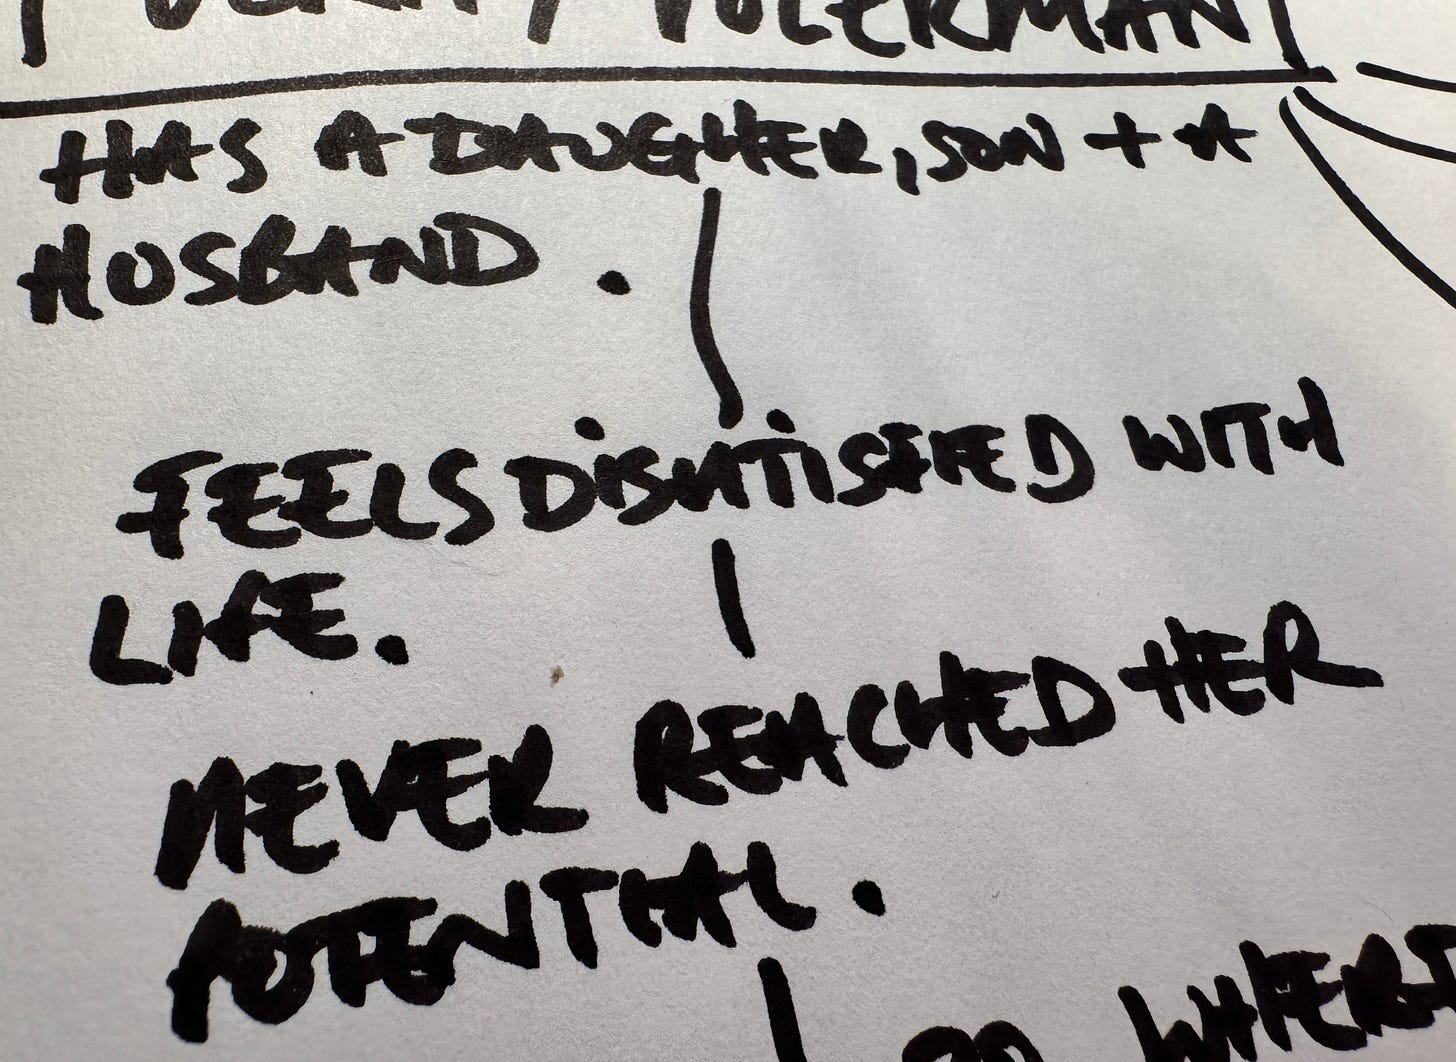 HAS A DAUGHER, SON + A
HUSBAND.
FEELS DISATISFIED WITH
LIFE.
NEVER REACHED HER
POTENTIAL.